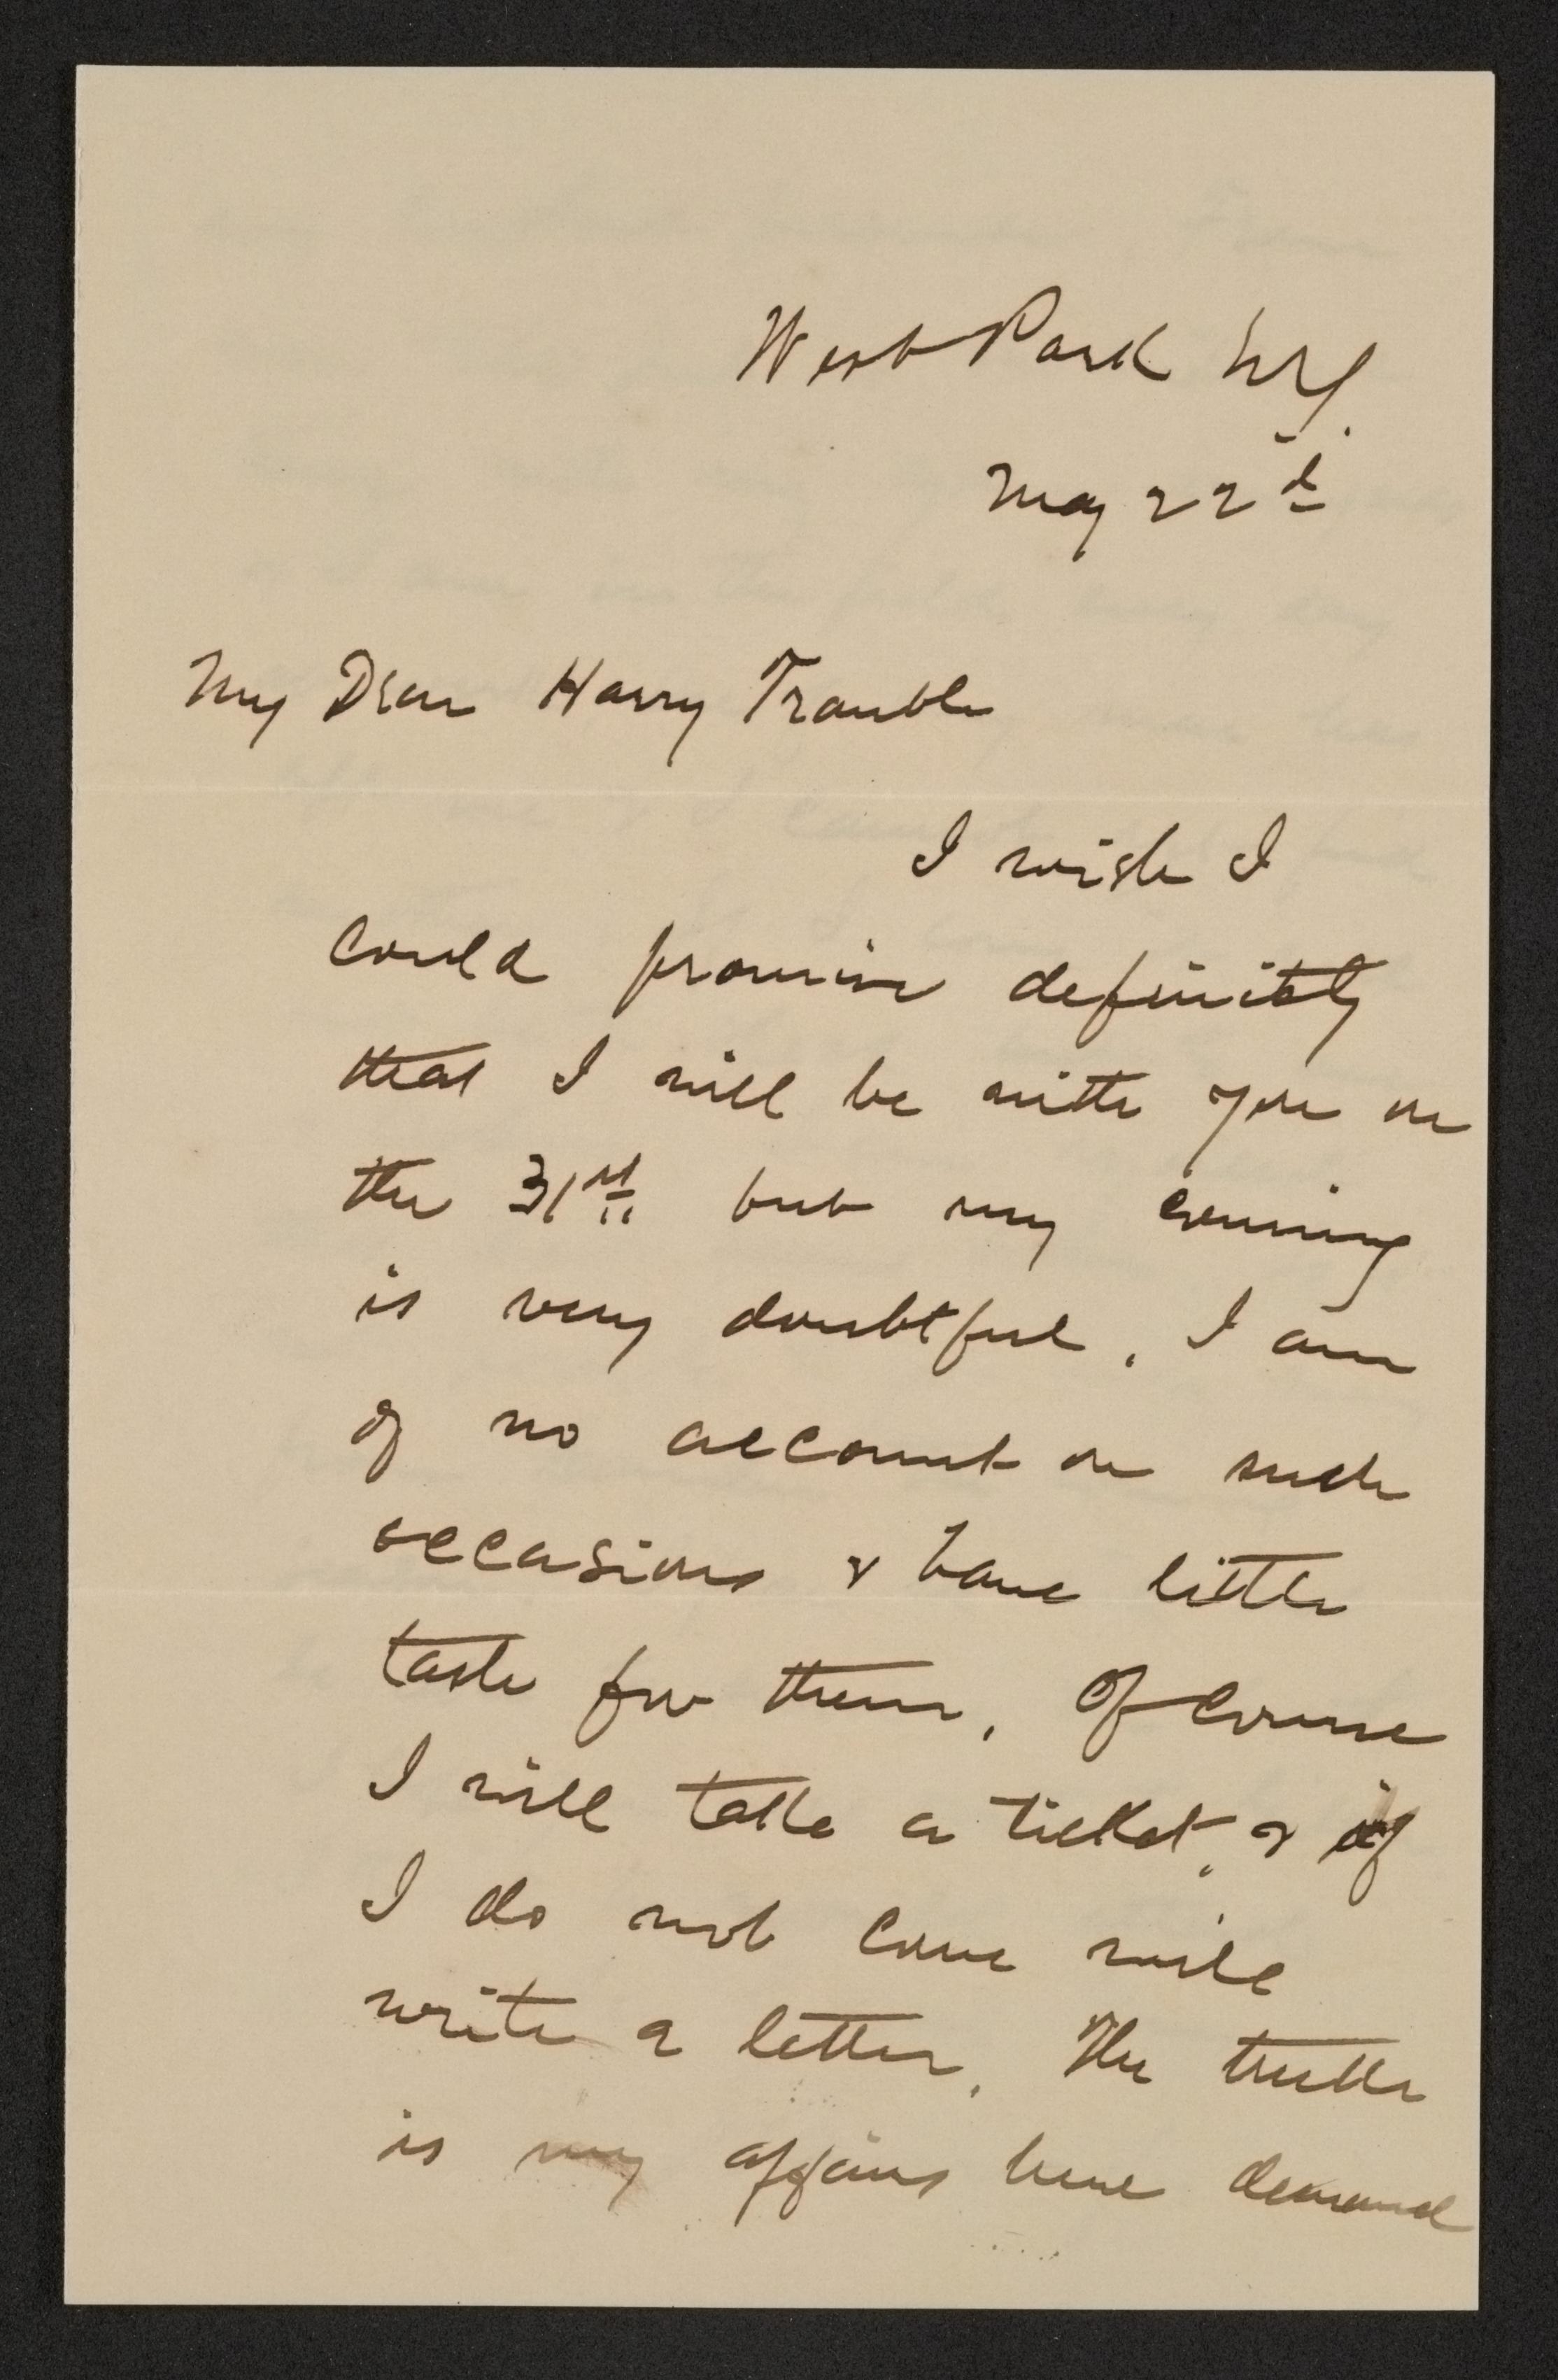 West Park N.Y.
May 22d
My Dear Harry Trauble
I wish I
could promise definitely
that I will be with you on
the 31st but my coming
is very doubtful. I am
of no account on such
occasions & have little
taste for them. Of course
I will take a ticket, & if
I do not come will
write a letter. The truth
is my affairs here demand